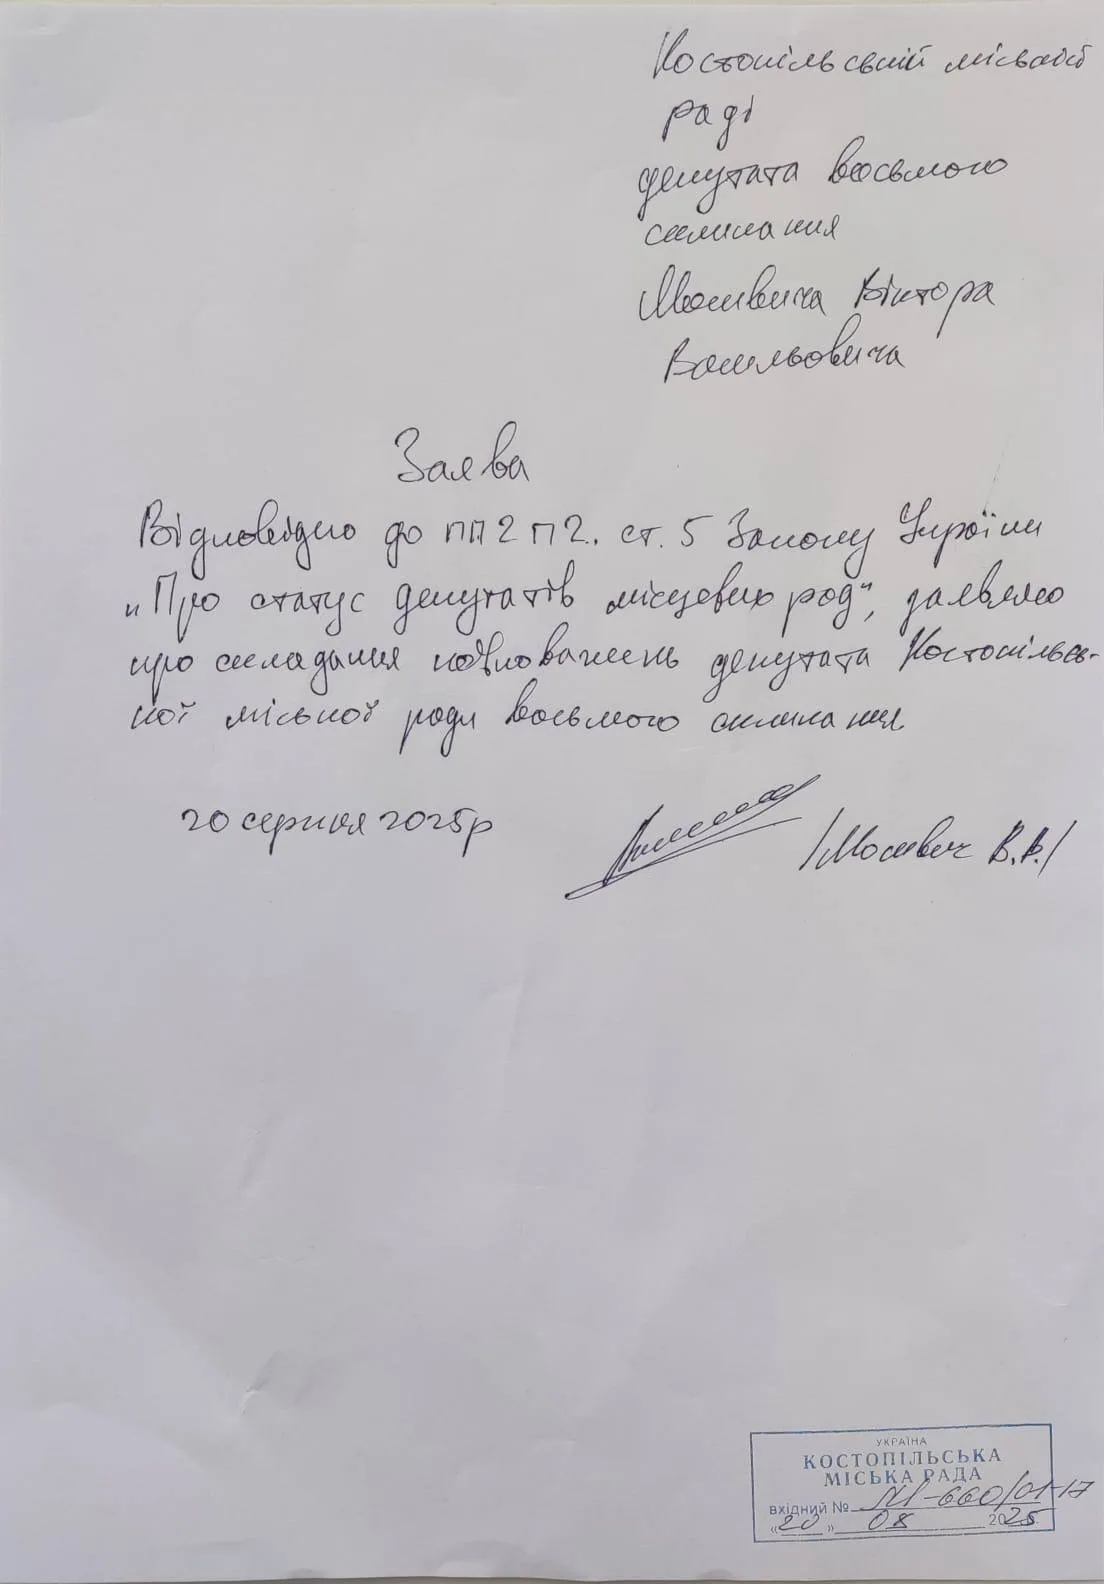 Костопільській міській
раді
депутата восьмого
скликання
Мосійвича Віктора
Васильовича
Заява
Відповідно до пп 2 п 2. ст. 5 Закону України
„Про статус депутатів місцевих рад", заявляю
про складання повноважень депутата Костопільсь-
кої міської ради восьмого скликання
20 серпня 2025р
/ В.В./
УКРАЇНА
КОСТОПІЛЬСЬКА
МІСЬКА РАДА
вхідний № М-660/01-17
«20» 08 2025